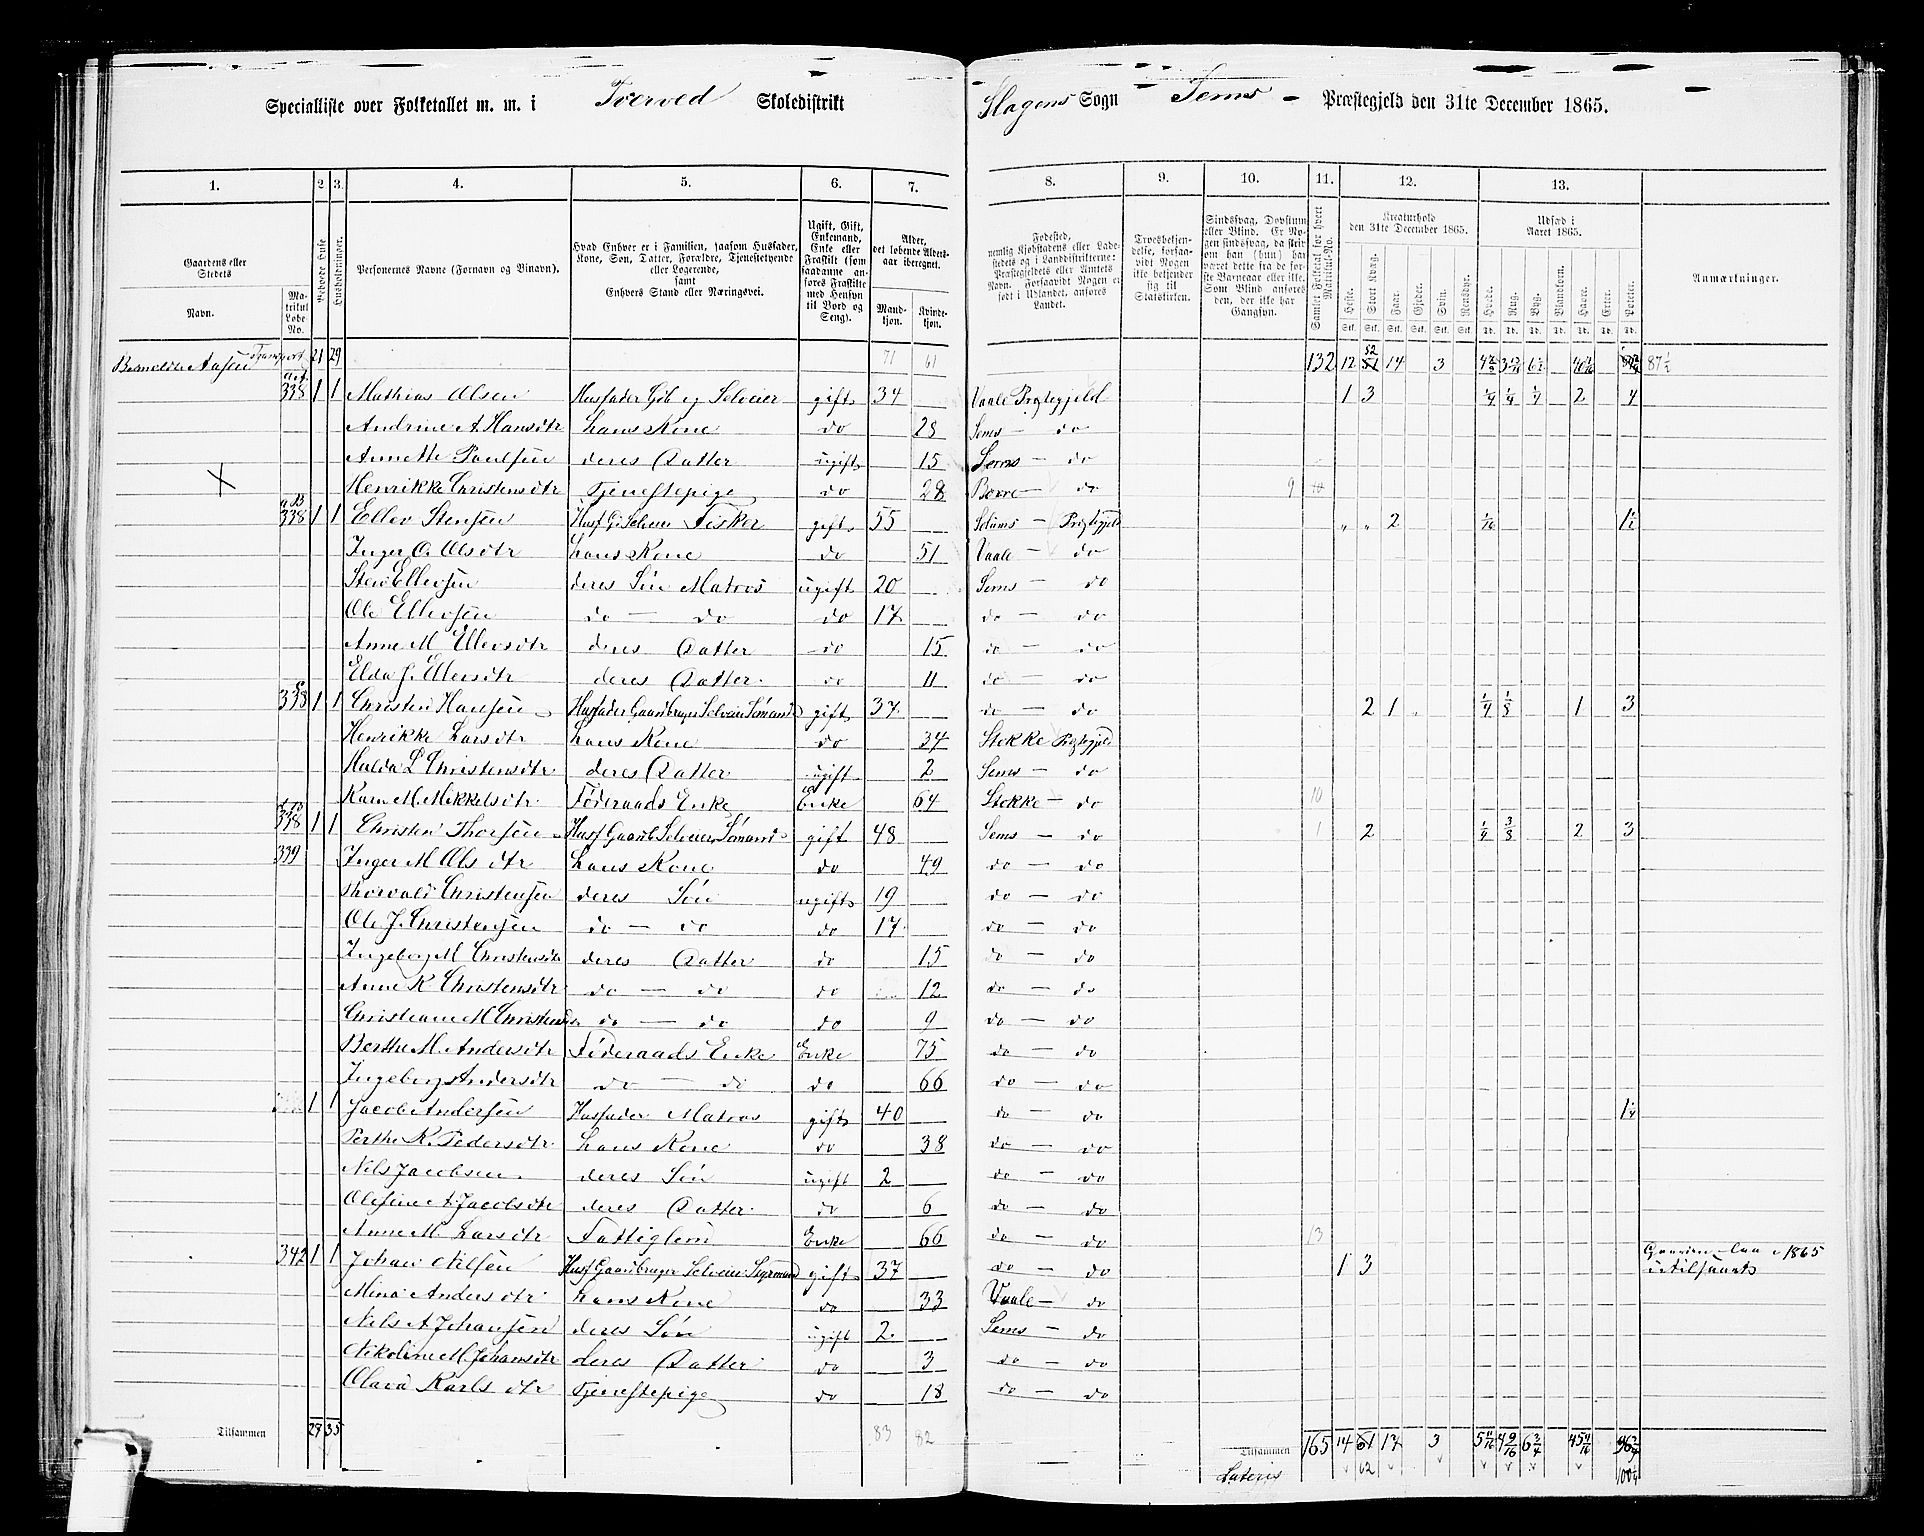 Specialliste over Folketallet m. m. i Tverved Skoledistrikt Slagens Sogn Sems Præstegjeld den 31te December 1865.
1. 2. 3. 4. 5. 6. 7. 8. 9. 10. 11. 12. 13.
Gaardens eller Stedets
Navn.
Matrikul Løbe-No.
Beboede Huse.
Husholdninger.
Personernes Navne (Fornavn og Binavn).
Hvad Enhver er i Familien, saasom Husfader, Kone, Søn, Datter, Forældre, Tjenestetyende eller Logerende, samt Enhvers Stand eller Næringsvei.
Ugift, Gift, Enkemand, Enke eller Fraskilt (som saadanne anføres Fraskilte med Hensyn til Bord og Seng).
Alder, det løbende Alders-aar iberegnet.
Mandkjøn. Kvindekjøn.
Fødested, nemlig Kjøbstadens eller Ladestedets og i Landdistrikterne: Præstegjeldets eller Amtets Navn. Forsaavidt Nogen er født i Udlandet, anføres Landet.
Troesbekjendelse, forsaavidt Nogen ikke bekjender sig til Statskirken.
Sindssvag, Døvstum eller Blind. Er Nogen sindssvag, da skrives om han (hun) har været dette fra de første Barneaar eller ikke. Som Blind anføres den, der ikke har Gangsyn.
Samlet Folketal for hvert Matrikul-No.
Kreaturhold den 31te December 1865.
Heste. Stort Kvæg. Faar. Gjeder. Svin. Rensdyr.
Udsæd i Aaret 1865.
Hvede. Rug. Byg. Blandkorn. Havre. Erter. Poteter.
Anmærkninger.
Transport 21 29 71 61 132 12 52 14 3 87½
338 1 1 Mathias Olsen Husfader Gbr og Selveier gift 34 Vaale Prstegjeld 1 3 ¼ ¼ ¼ 2 4
Andrine A Hansdtr hans Kone do 28 Sems - do
Annette Paulsen deres Datter ugift 15 Sems - do
Henrikke Christensdtr Tjenestepige do 28 Borre - do 9
338 1 1 Ellev Stensen Husf G Selveier Fisker gift 55 Prstegjeld " " 2 1½
Inger O. Olsdtr hans Kone do 51 Vaale - do
Sten Ellevsen deres Søn Matros ugift 20 Sems - do
Ole Ellevsen do - do do 17 do - do
Anne M Ellevsdtr deres Datter do 15 do - do
Elda J. Ellevsdtr deres Datter do 11 do - do
338 1 1 Christen Hansen Husfader Gaardbruger Selveier Sømand gift 37 do - do 2 1 ¼ ⅛ 1 3
Henrikke Larsdtr hans Kone do 34 Stokke Prstegjeld
Hulda L Christensdtr deres Datter ugift 2 Sems - do
Karen M. Mikkelsdtr Føderaads Enke Enke 64 Stokke - do 10
338 1 1 Christen Thorsen Husf Gaardb Selveier Sømand gift 48 Sems - do 1 2 ¼ ⅜ 2 3
339 Inger M Olsdtr hans Kone do 49 do - do
Thorvald Christensen deres Søn ugift 19 do - do
Ole J. Christensen do - do do 17 do - do
Ingeborg M Christensdtr deres Datter do 15 do - do
Anne K Christensdtr do - do do 12 do - do
Christiane M Christensdtr do - do do 9 do - do
Berthe M. Andersdtr Føderaads Enke Enke 75 do - do
Ingeborg Andersdtr do - do do 66 do - do
1 1 Jacob Andersen Husfader Matros gift 40 do - do
Berthe K. Pedersdtr hans Kone do 38 do - do
Nils Jacobsen deres Søn ugift 2 do - do
Olefine A Jacobsdtr deres Datter do 6 do - do
Anne M. Larsdtr Fattiglem Enke 66 do - do 13
342 1 1 Johan Nilsen Husf Gaardbruger Selveier Styrmand gift 37 do - do 1 3 laa i 1865
Mina Andersdtr hans Kone do 33 Vaale - do
Nils A Johansen deres Søn ugift 2 Sems - do
Nikoline M. Johansdtr deres Datter do 3 do - do
Olava Karlsdtr Tjenestepige do 18 do - do
Tilsammen 28 35 83 82 Tilsammen 165 14 61 17 3
62
Lateris